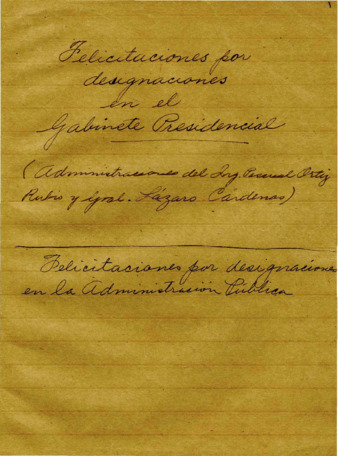 Felicitaciones por
designaciones
en el
Gabinete Presidencial
(Administraciones del Ing. Pascual Ortiz
Rubio y Gral. Lázaro Cárdenas)
Felicitaciones por designaciones
en la Administración Pública